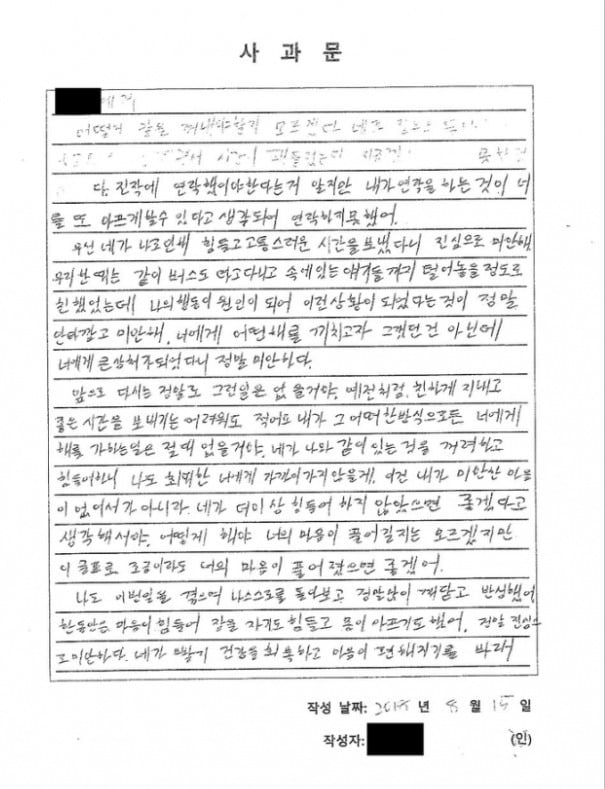 사 과 문
에게
어떻게 말을 꺼내야할지 모르겠다
시간이
다. 진작에 연락했어야한다는거 알지만 내가 연락을 하는 것이 너
를 또 아프게 할 수 있다고 생각되어 연락하지 못했어.
우선 네가 나로인해 힘들고 고통스러운 시간을 보냈다니 진심으로 미안해.
우리 한때는 같이 버스도 타고 다니고 속에있는 얘기들까지 털어놓을 정도로
친했었는데 나의 행동이 원인이 되어 이런 상황이 되었다는 것이 정말
안타깝고 미안해. 너에게 어떤 해를 끼치고자 그랬던 건 아닌데
너에게 큰 상처가 되었다니 정말 미안하다.
앞으로 다시는 정말로 그런일은 없을거야. 예전처럼 친하게 지내고
좋은 시간을 보내기는 어려워도 적어도 내가 그 어떠한 방식으로든 너에게
해를 가하는일은 절때 없을거야. 네가 나와 같이 있는 것을 꺼려하고
힘들어하니 나도 최대한 너에게 가까이가지 않을게. 이건 내가 미안한 마음
이 없어서가 아니라 네가 더이상 힘들어 하지 않았으면 좋겠다고
생각해서야. 어떻게 해야 너의 마음이 풀어질지는 모르겠지만
이 글로 조금이라도 너의 마음이 풀어졌으면 좋겠어.
나도 이번일을 겪으며 나 스스로를 돌아보고 정말많이 깨닫고 반성했어.
한동안은 마음이 힘들어 잠을 자기도 힘들고 몸이 아프기도 했어. 정말 진심으
로 미안하다. 네가 빨리 건강을 회복하고 마음이 편해지기를 바래
작성 날짜: 2018 년 8 월 15 일
작성자: (인)